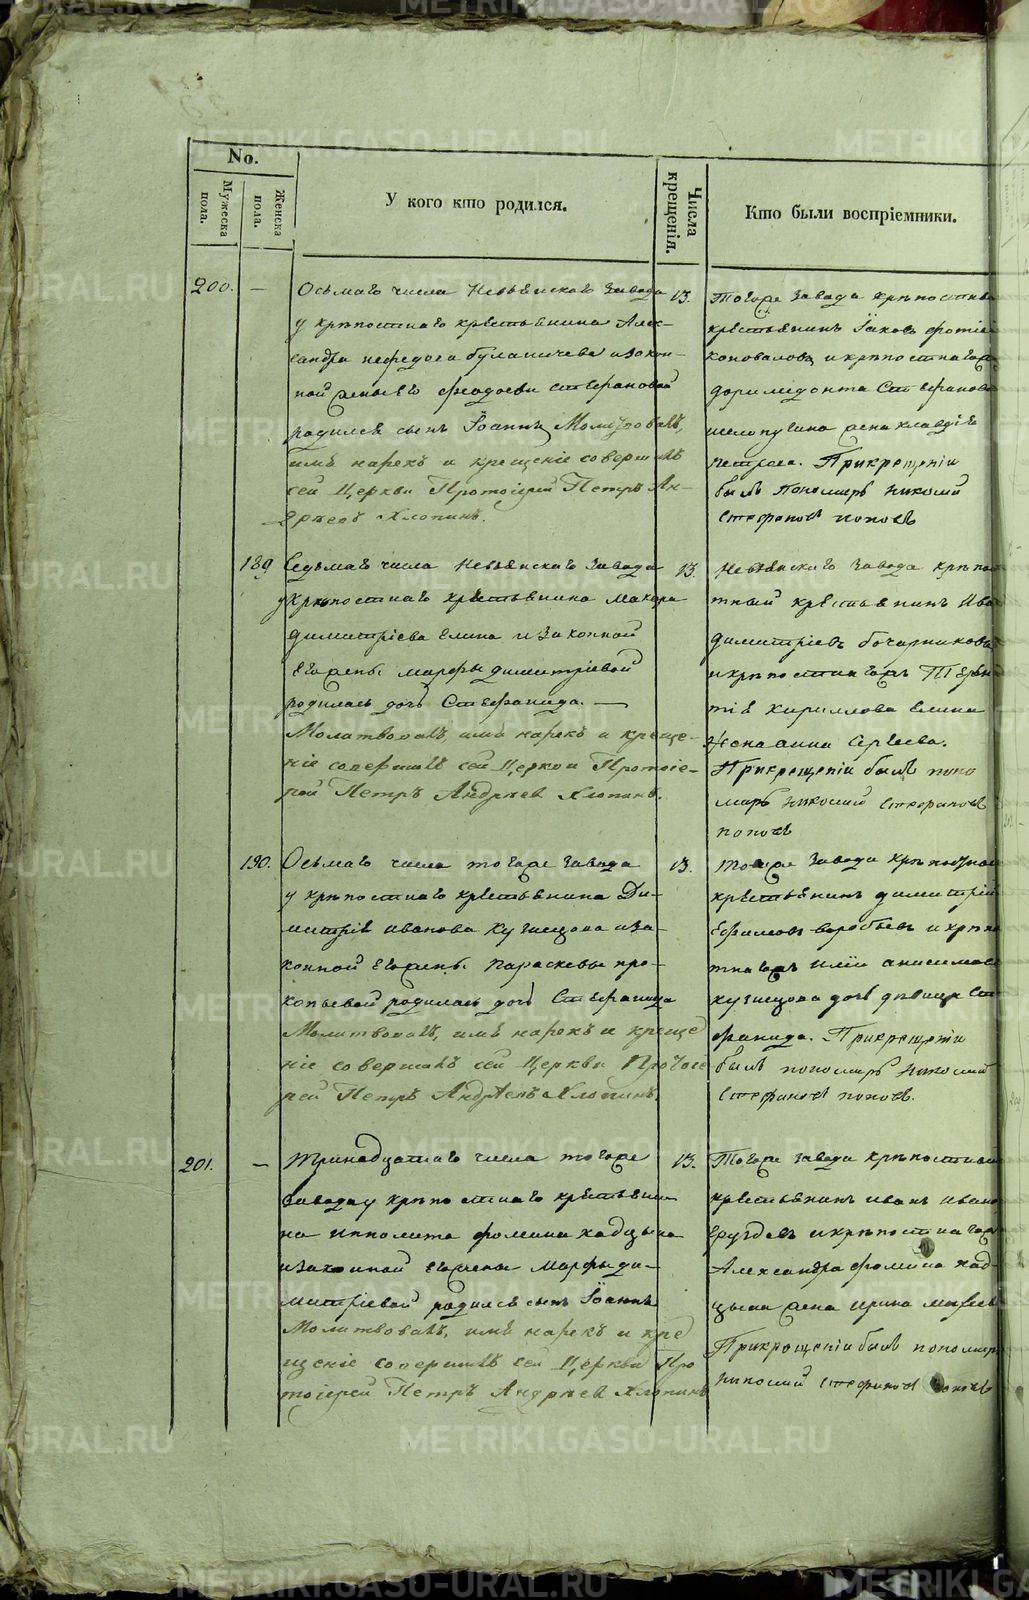 No.
Мужеска пола.
Женска пола.
У кого кто родился.
Числа крещенія.
Кто были воспріемники.
200. —
Осьмаго числа Невьянскаго завода
у крѣпостнаго крестьянина Алек-
сандра нефедова буланичева изакон-
ной жены его феодосіи стефановой
родился сынъ Іоаннъ Молитвовалъ,
имя нарекъ и крещеніе совершилъ
сей Церкви Протоіерей Петръ Ан-
дреевъ Хлопинъ.
13.
Тогоже завода крѣпостны
крестьянинъ Іаковъ фотіе
коноваловъ и крѣпостнаго
доримедонта Стефанова
шелопугина жена клавдія
петрова. Прикрещеніи
былъ Пономарь Никомій
Стефановъ поповъ
189
Седьмаго числа Невьянскаго завода
укрѣпостнаго крестьянина Макара
димитріева Елина и законной
его жены марфы димитріевой
родилась дочь Стефанида. —
Молитвовалъ, имя нарекъ и креще-
ніе совершилъ сей Церкви Протоіе-
рей Петръ Андреевъ Хлопинъ.
13.
Невьянскаго завода крѣпос
тный крестьянинъ Ива
димитріевъ бочарников
икрѣпостнагожъ Терен
тія Кириллова Елина
жена анна Сергеева.
Прикрещеніи былъ поно
марь Никомій Стефановъ
поповъ
190.
Осьмаго числа тогоже завода
у крѣпостнаго крестьянина Ди-
митрія иванова Кузнецова иза-
конной его жены Параскевы про-
копьевой родилась дочь Стефанида
Молитвовалъ, имя нарекъ и креще
ніе совершилъ сей Церкви Протоіе
рей Петръ Андреевъ Хлопинъ.
13.
Тогоже завода крѣпостно
крестьянинъ димитрій
Ефимовъ воробьевъ и крѣпо
тнагожъ иліи анисимов
кузнецова дочь дѣвица Ст
фанида. Прикрещеніи
былъ пономарь Никомій
Стефановъ поповъ.
201. —
Тринадцатаго числа тогоже
завода у крѣпостнаго крестьяни-
на ипполита фомина хадцына
изаконной его жены Марфы ди-
митріевой родился сынъ Іоаннъ
Молитвовалъ, имя нарекъ и кре
щеніе совершилъ сей Церкви Про
тоіерей Петръ Андреевъ Хлопинъ
13.
Тогоже завода крѣпостны
крестьянинъ иванъ Ивано
икрѣпостнаго
Александра фомина хад-
цына жена ирина
Прикрещеніи былъ пономарь
Никомій Стефановъ поповъ
METRIKI.GASO-URAL.RU